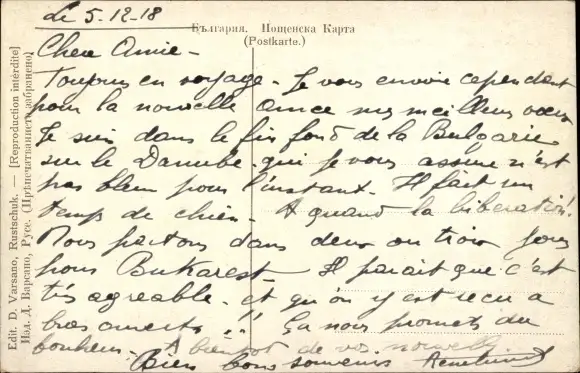 Le 5-12-18
България. Пощенска Карта
(Postkarte.)
Chere Amie -
Toujours en voyage - Je vous envoie cependant
pour la nouvelle année mes meilleurs vœux
Je suis dans le fin fond de la Bulgarie
sur le Danube qui je vous assure n'est
pas bleu pour l'instant. Il fait un
temps de chien - A quand la libération!
Nous partons dans deux ou trois jours
pour Bukarest - Il parait que c'est
très agréable - et qu'on y est reçu a
bras ouverts !! Ça nous promet du
bonheur - A bientot de vos nouvelles
Bien bons souvenirs
Edit. D. Varsano, Rustschuk. — [Reproduction interdite]
Изд. Д. Варсано, Русе. (Прѣпечатванието забранено)